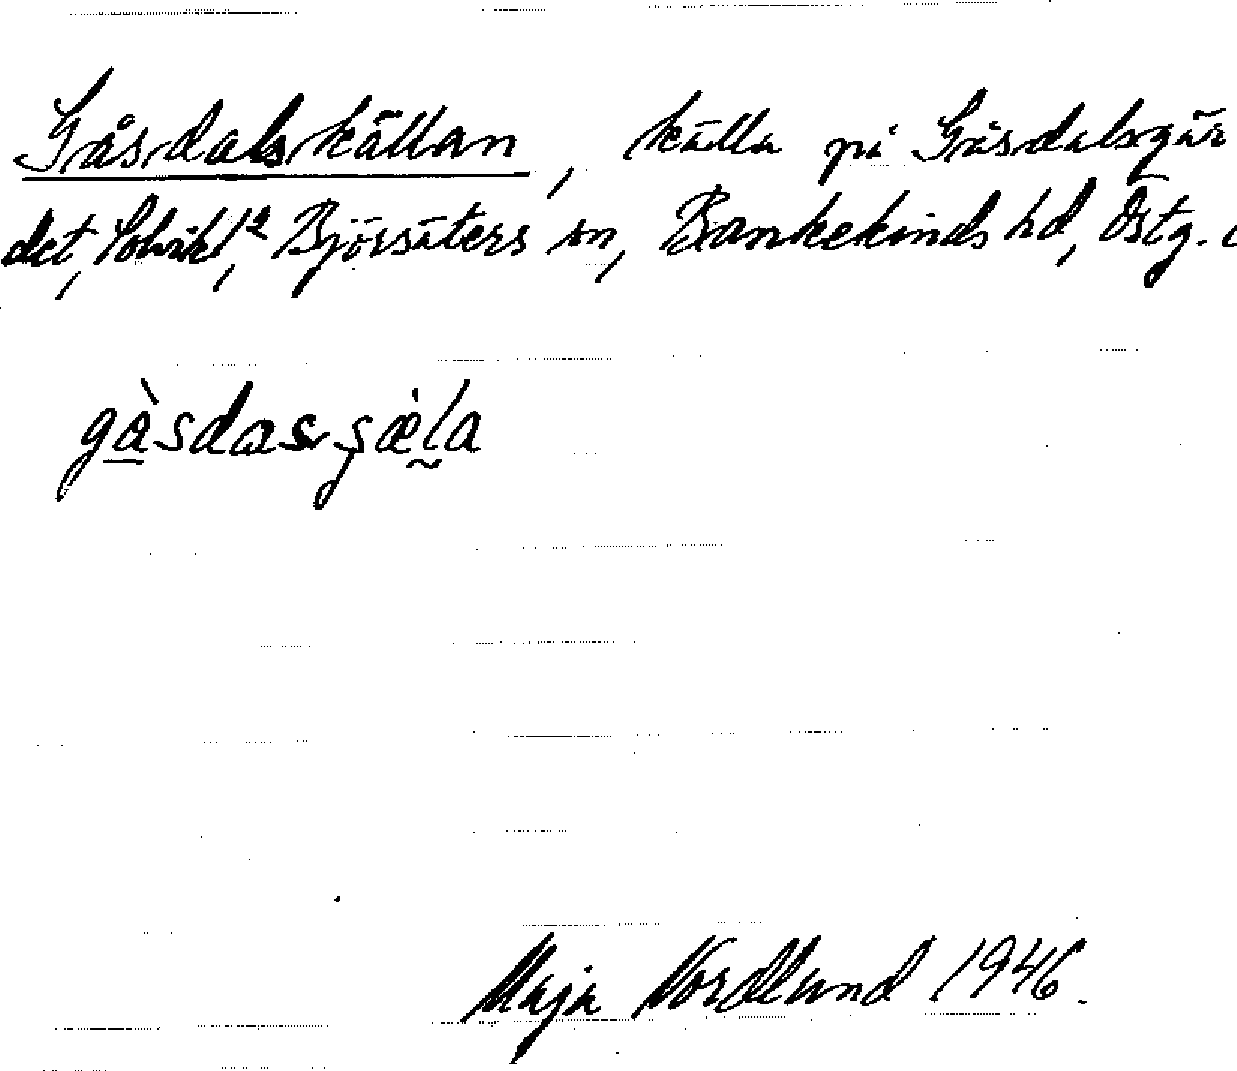 Gåsdalskällan, källa på Gåsdalsgär
det, Solvik 1², Björsäters sn, Bankekinds hd, Östg.
gàsdas sæ̀la
Maja Nordlund 1946.